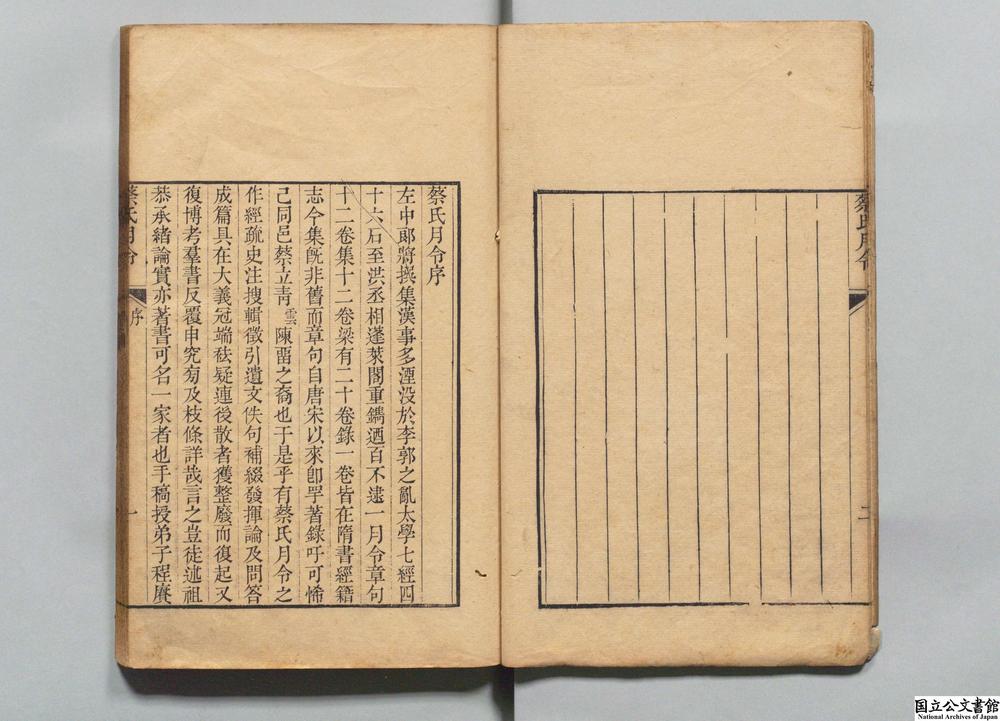 蔡氏月令
二
蔡氏月令序
左中郎將撰集漢事多湮没於李郭之亂太學七經四
十六石至洪丞相蓬萊閣重鐫迺百不逮一月令章句
十二卷集十二卷梁有二十卷錄一卷皆在隋書經籍
志今集旣非舊而章句自唐宋以來卽罕著錄吁可悕
已同邑蔡立青雲陳畱之裔也于是乎有蔡氏月令之
作經疏史注搜輯徵引遺文佚句補綴發揮論及問答
成篇具在大義冠端袪疑連後散者獲整廢而復起又
復博考羣書反覆申究旁及枝條詳哉言之豈徒述祖
恭承緒論實亦著書可名一家者也手稿授弟子程賡
蔡氏月令
序
一
国立公文書館
National Archives of Japan